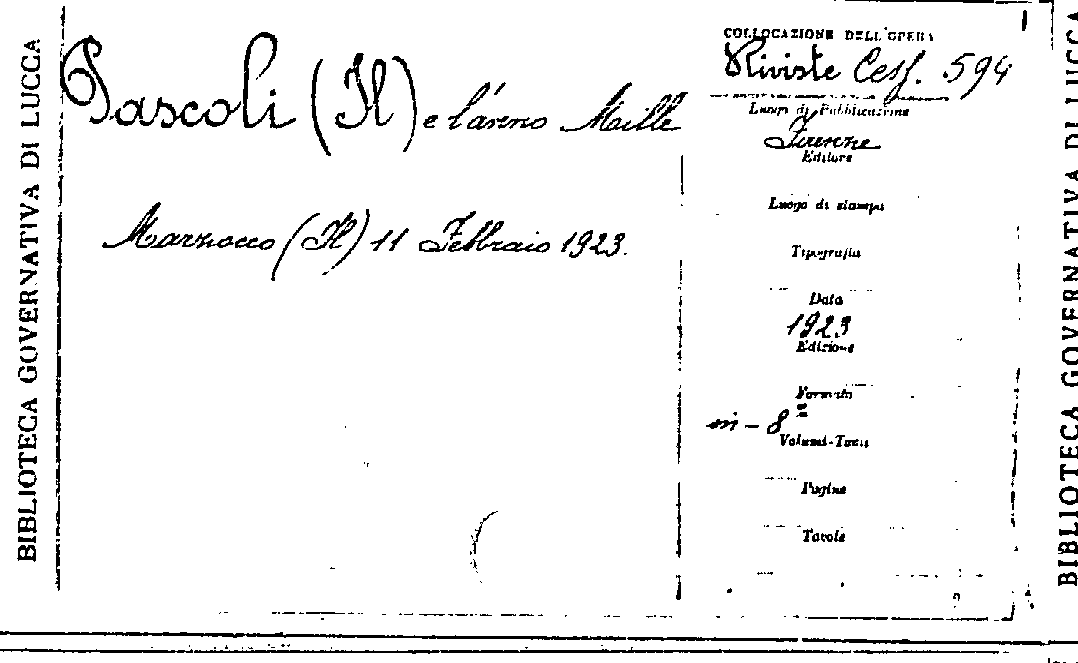 BIBLIOTECA GOVERNATIVA DI LUCCA
Pascoli (Il) e l'anno Mille
Marzocco (Il) 11 Febbraio 1923.
COLLOCAZIONE DELL'OPERA
Riviste Cesf. 594
Luogo di Pubblicazione
Firenze
Editore
Luogo di stampa
Tipografia
Data
1923
Edizione
Formato
in-8º
Volumi-Tomi
Pagine
Tavole
BIBLIOTECA GOVERNATIVA DI LUCCA